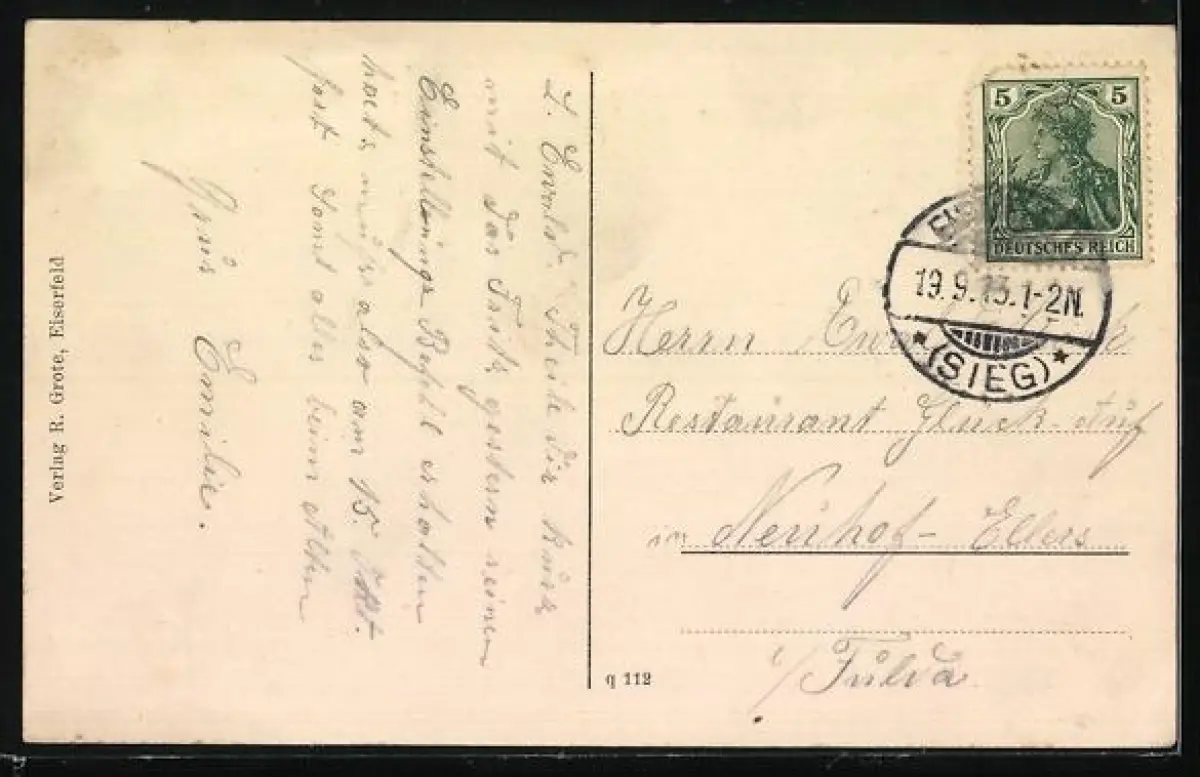 L. Ewald. Theile dir kurz
mit das Fritz gestern seinen
Einstellungs Befehl erhalten
hat, muß also am 15. Okt.
fort. Sonst alles beim Alten
Gruß Emilie.
Verlag R. Grote, Eiserfeld
q 112
5 5
DEUTSCHES REICH
19.9.13. 1-2N.
* (SIEG) *
Herrn
Restaurant Glück-Auf
in Neuhof-Ellers
i/ Fulda